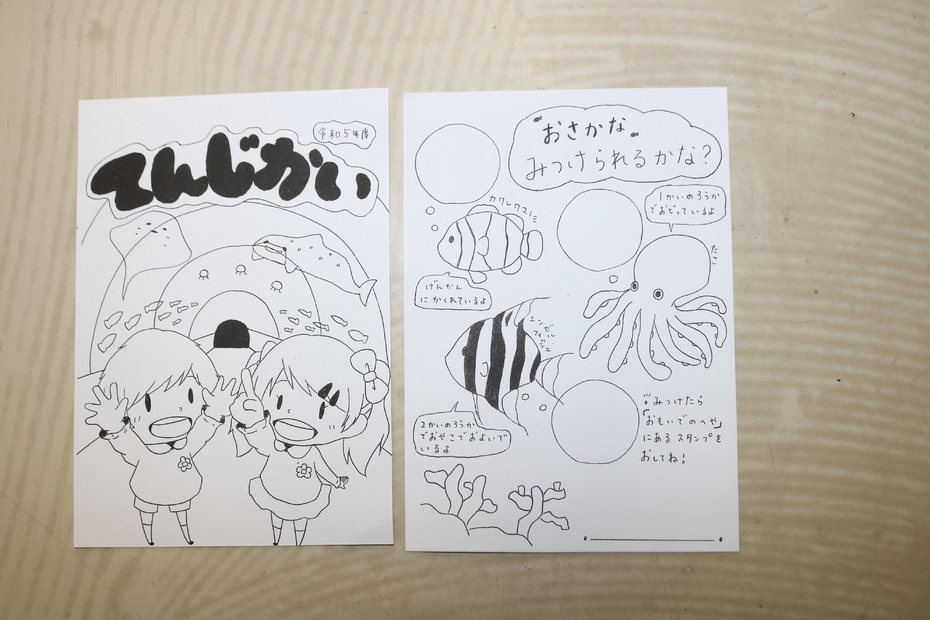 令和5年度
てんじかい
"おさかな"
みつけられるかな?
カクレクマノミ
げんかん
にかくれているよ
1かいのろうか
でおどっているよ
たこ
エンゼル
フィッシュ
2かいのろうか
でおよいで
いるよ
※みつけたら
「おもいでのへや」
にあるスタンプを
おしてね!